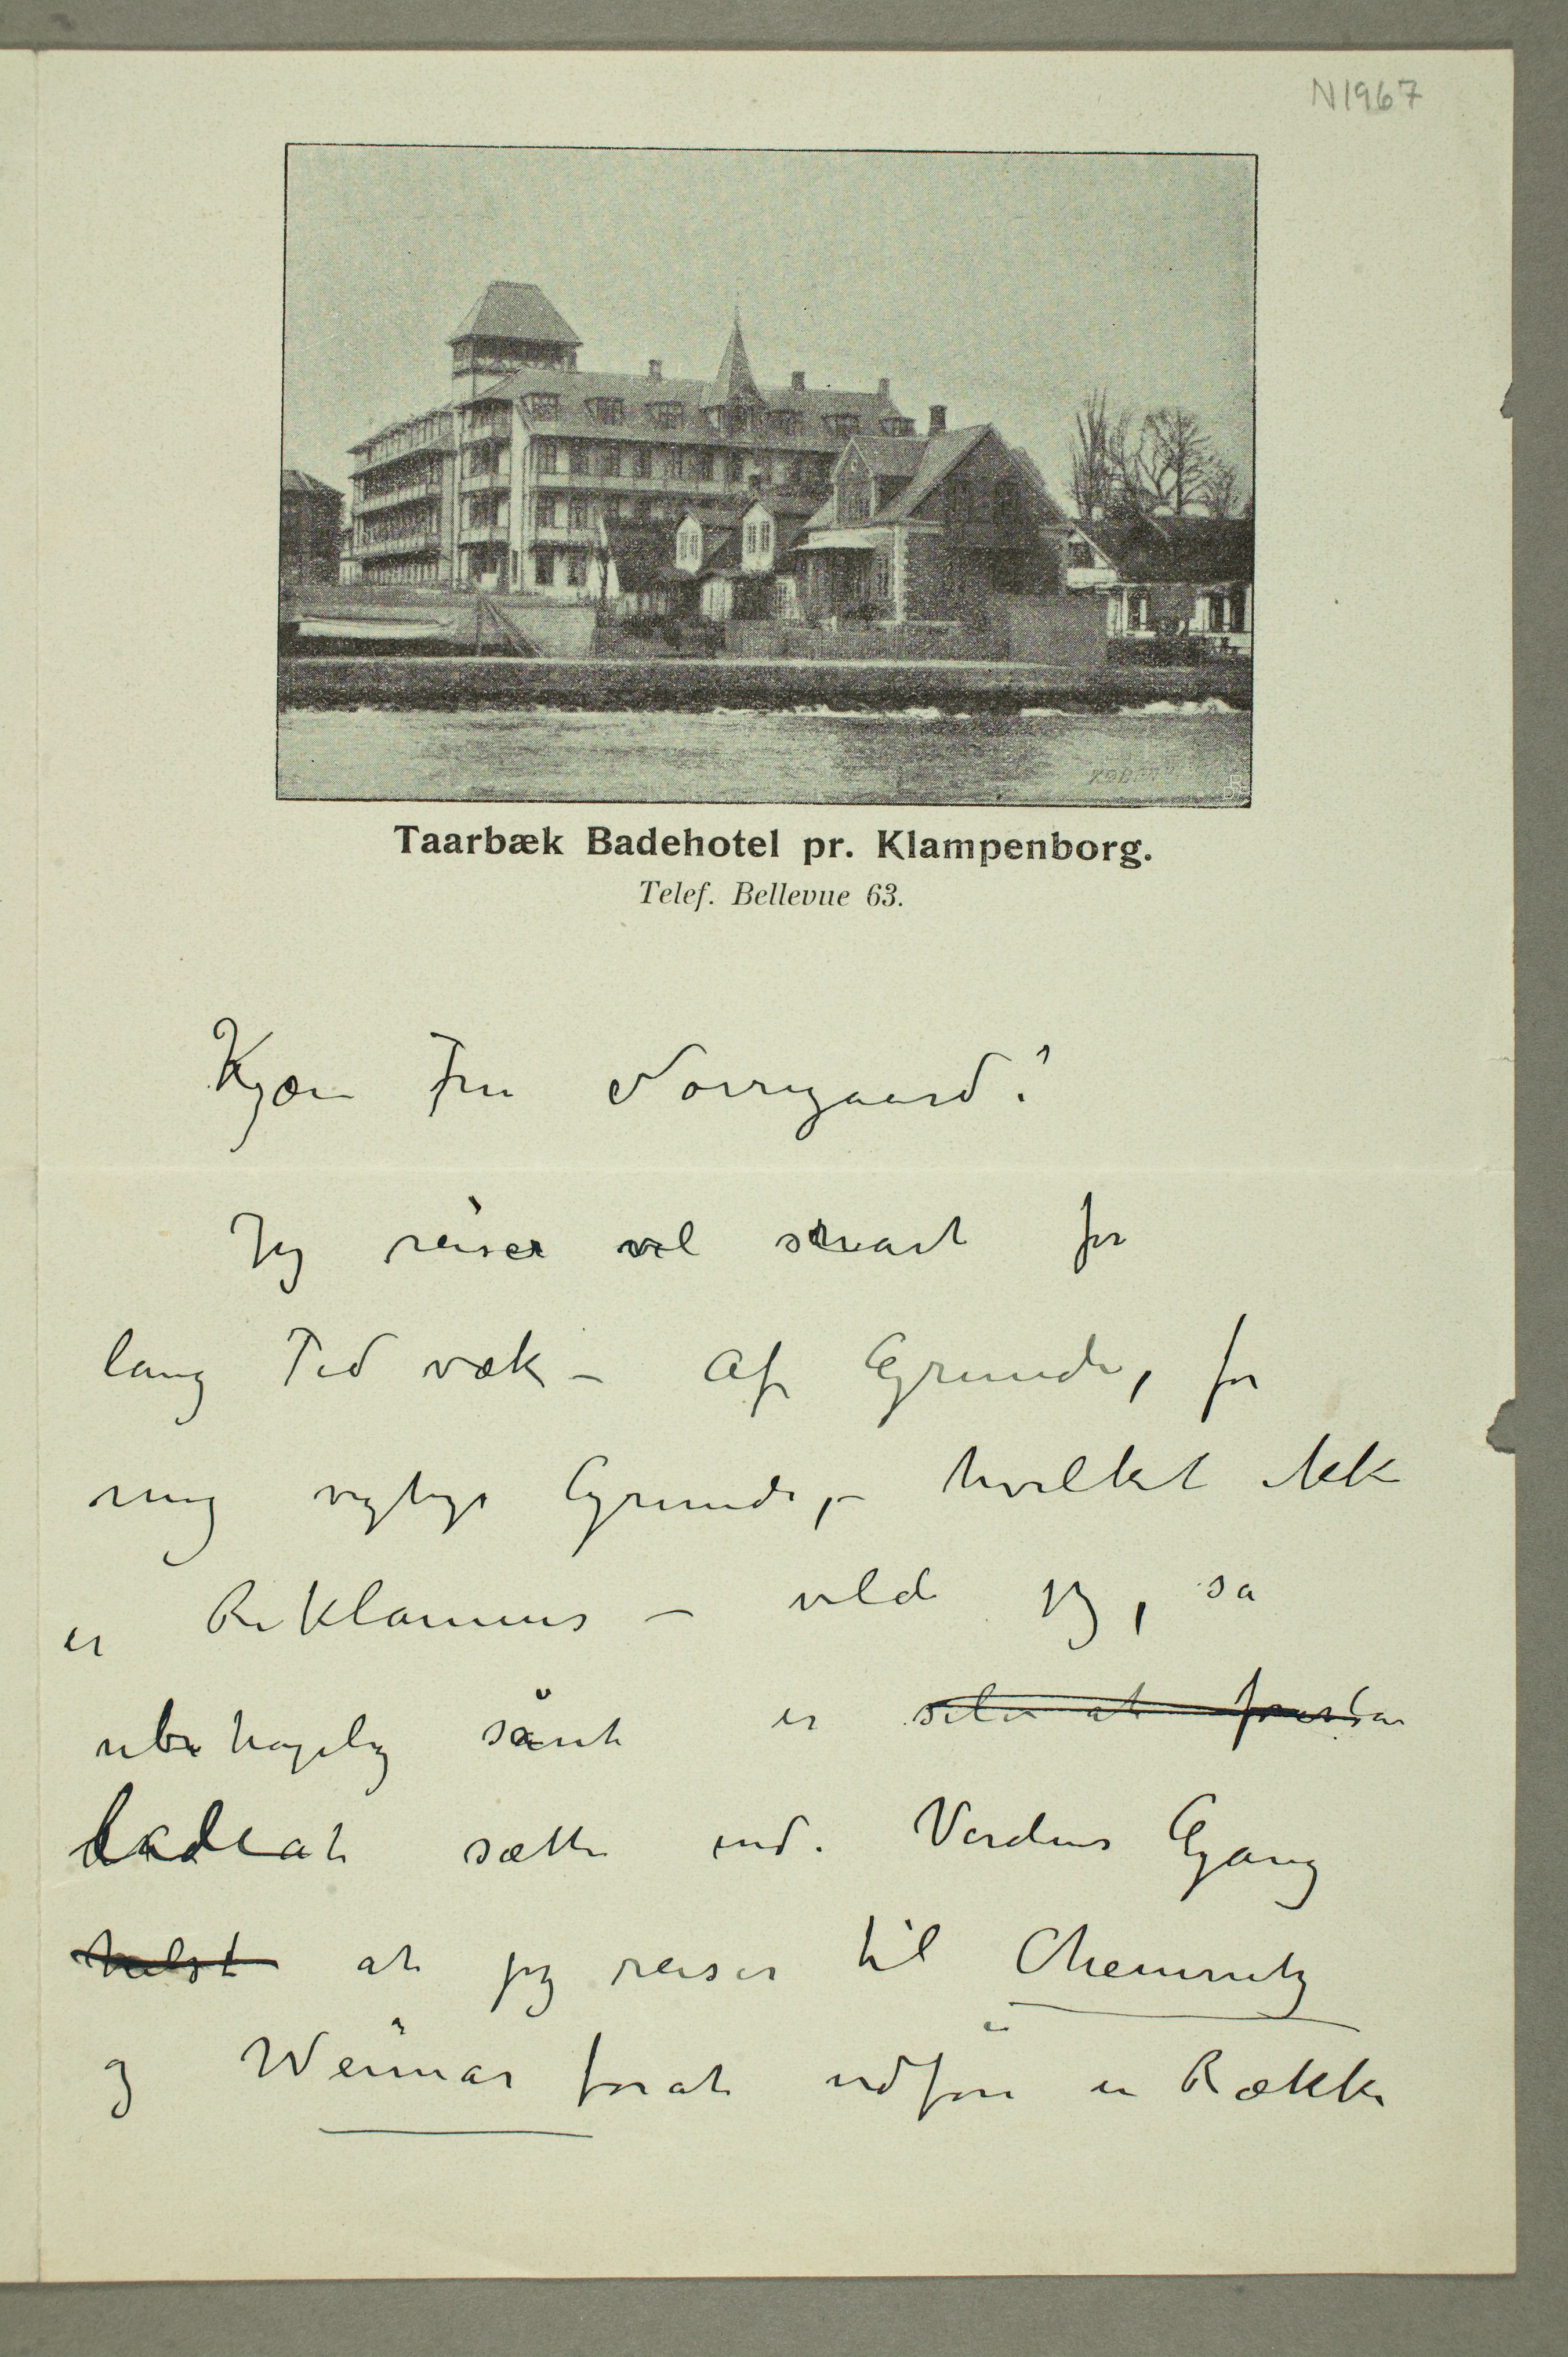 N1967
Taarbæk Badehotel pr. Klampenborg.
Telef. Bellevue 63.
Kjære Fru Nørregaard!
Jeg reiser vel snart for
lang Tid væk – Af Grunde, for
mig vigtige Grunde, – hvilket ikke
er Reklamens – vilde jeg, så
ubehagelig sånt er selv at
lade at sætte ind. Verdens Gang
helst at jeg reiser til Chemnitz
og Weimar forat udføre en Række